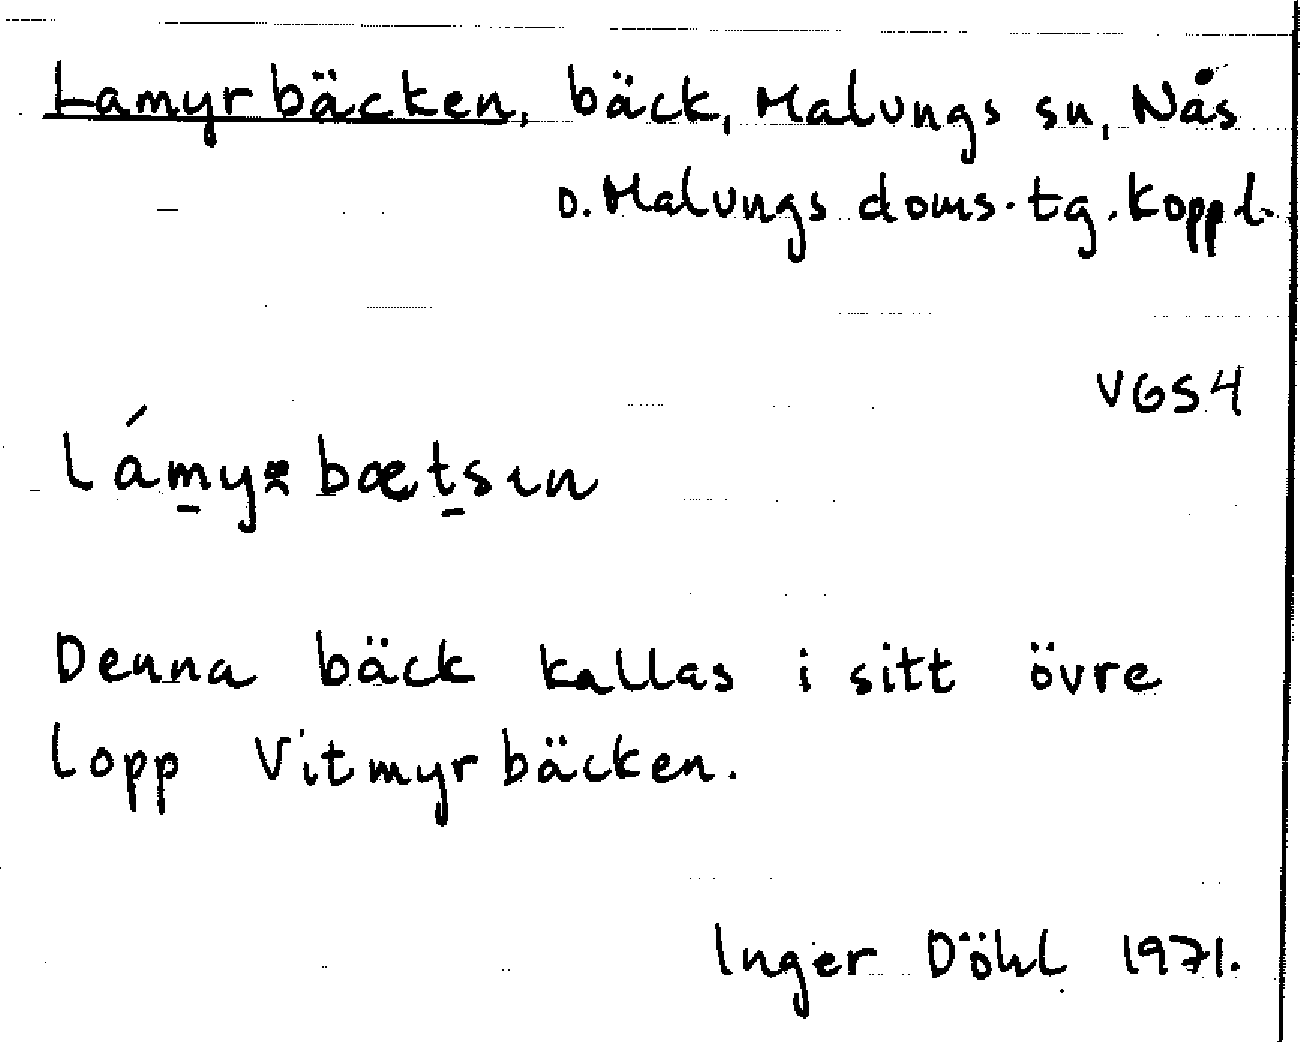 Lamyrbäcken, bäck, Malungs sn, Nås
o. Malungs doms. tg. Koppl.
VGS4
lámyrbætsın
Denna bäck kallas i sitt övre
lopp Vitmyrbäcken.
Inger Döhl 1971.